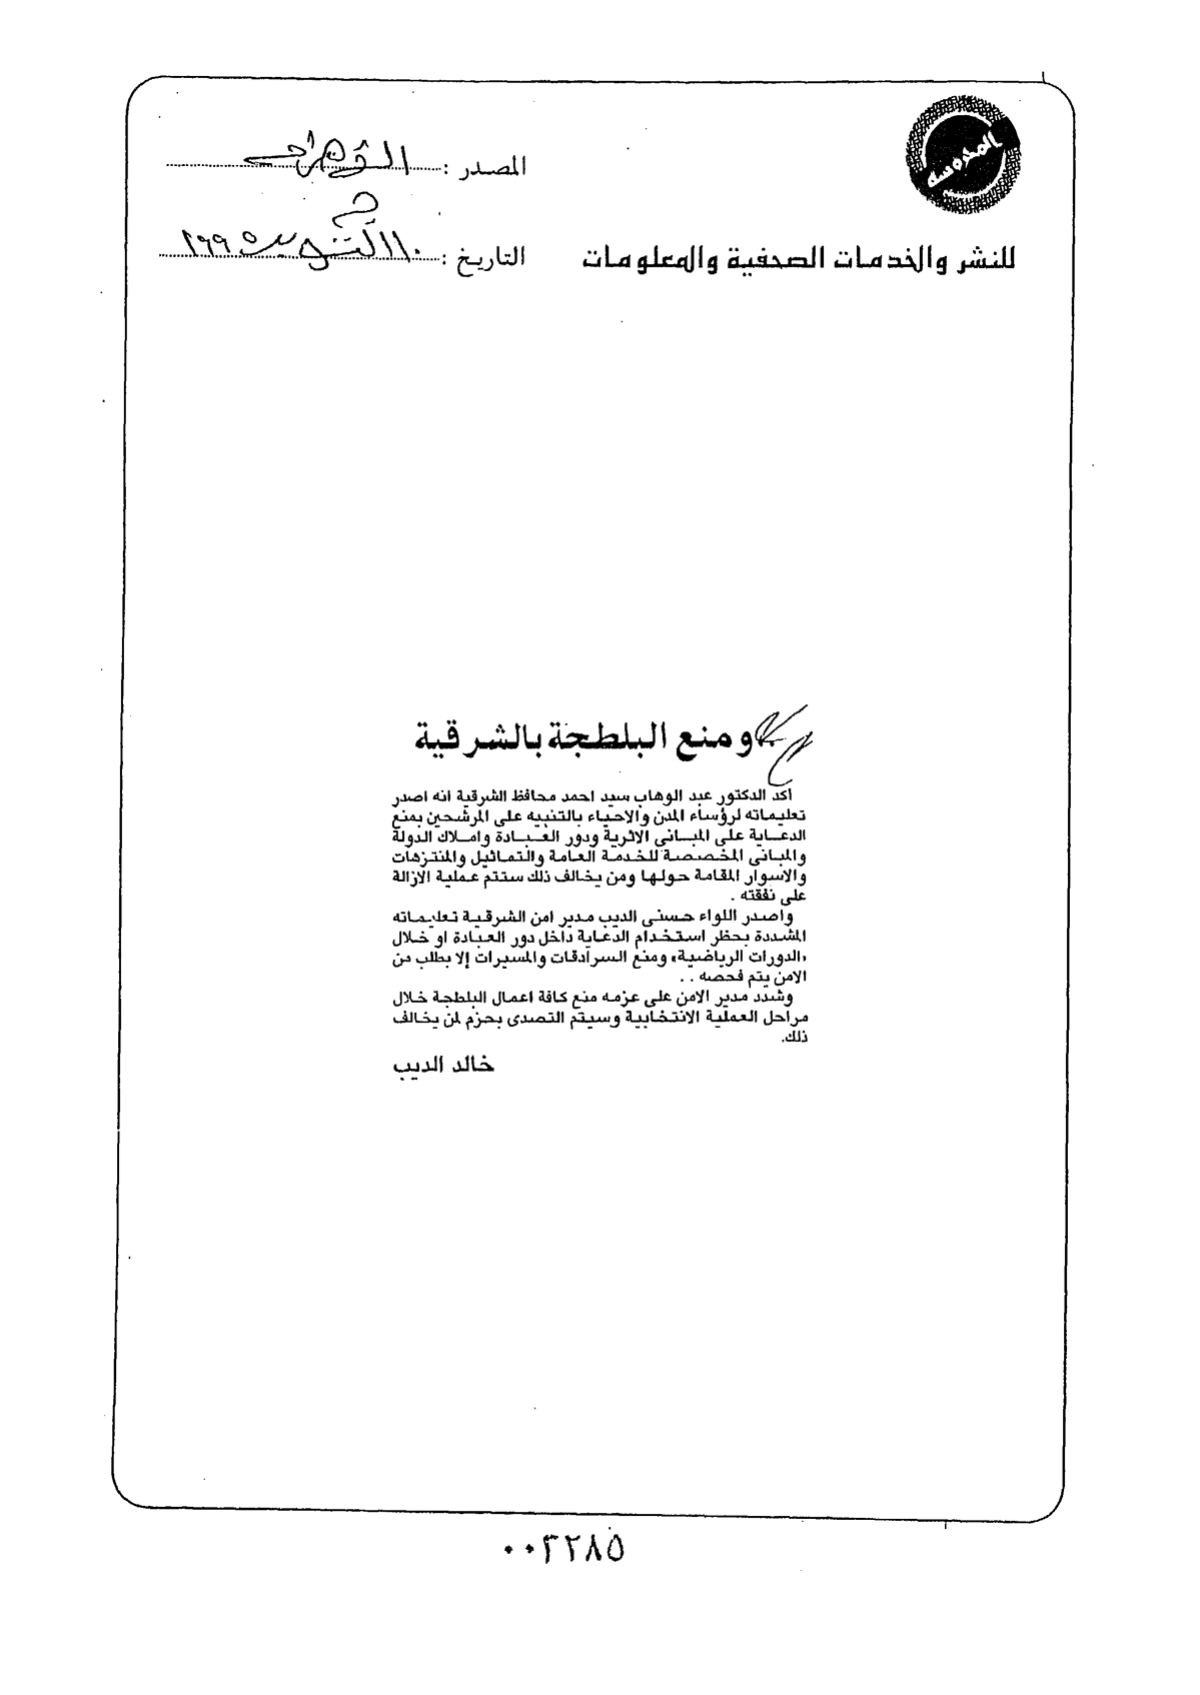 المحروسة
المصدر :
التاريخ :
للنشر والخدمات الصحفية والمعلومات
..ومنع البلطجة بالشرقية
اكد الدكتور عبد الوهاب سيد احمد محافظ الشرقية انه اصدر
تعليماته لرؤساء المدن والاحياء بالتنبيه على المرشحين بمنع
الدعاية على المبانى الاثرية ودور العبادة واملاك الدولة
والمبانى المخصصة للخدمة العامة والتماثيل والمنتزهات
والاسوار المقامة حولها ومن يخالف ذلك ستتم عملية الازالة
على نفقته .
واصدر اللواء حسنى الديب مدير امن الشرقية تعليماته
المشددة بحظر استخدام الدعاية داخل دور العبادة او خلال
«الدورات الرياضية» ومنع السرادقات والمسيرات إلا بطلب من
الامن يتم فحصه . .
وشدد مدير الامن على عزمه منع كافة اعمال البلطجة خلال
مراحل العملية الانتخابية وسيتم التصدى بحزم لمن يخالف
ذلك.
خالد الديب
٠٠٣٢٨٥